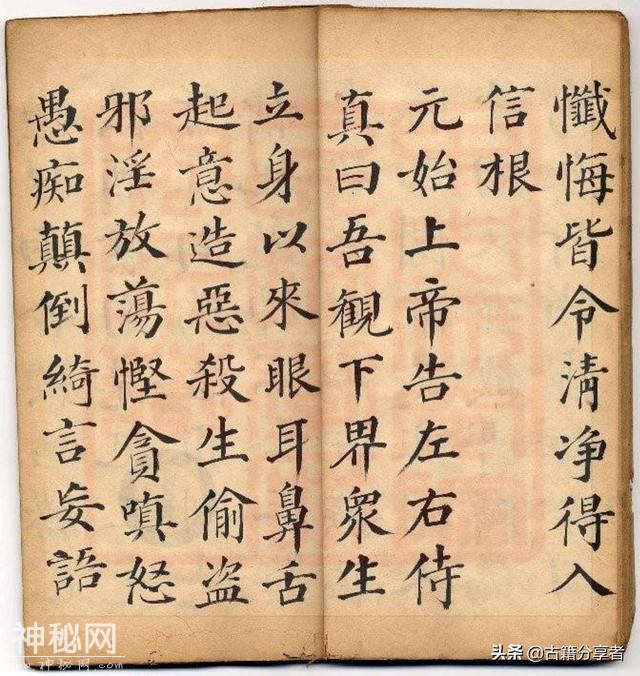 懺悔皆令清净得入
信根
元始上帝告左右侍
真曰吾觀下界衆生
立身以來眼耳鼻舌
起意造惡殺生偷盗
邪淫放蕩慳貪嗔怒
愚痴顛倒綺言妄語
神秘网
www.shenmiwang.com
头条 @古籍分享者